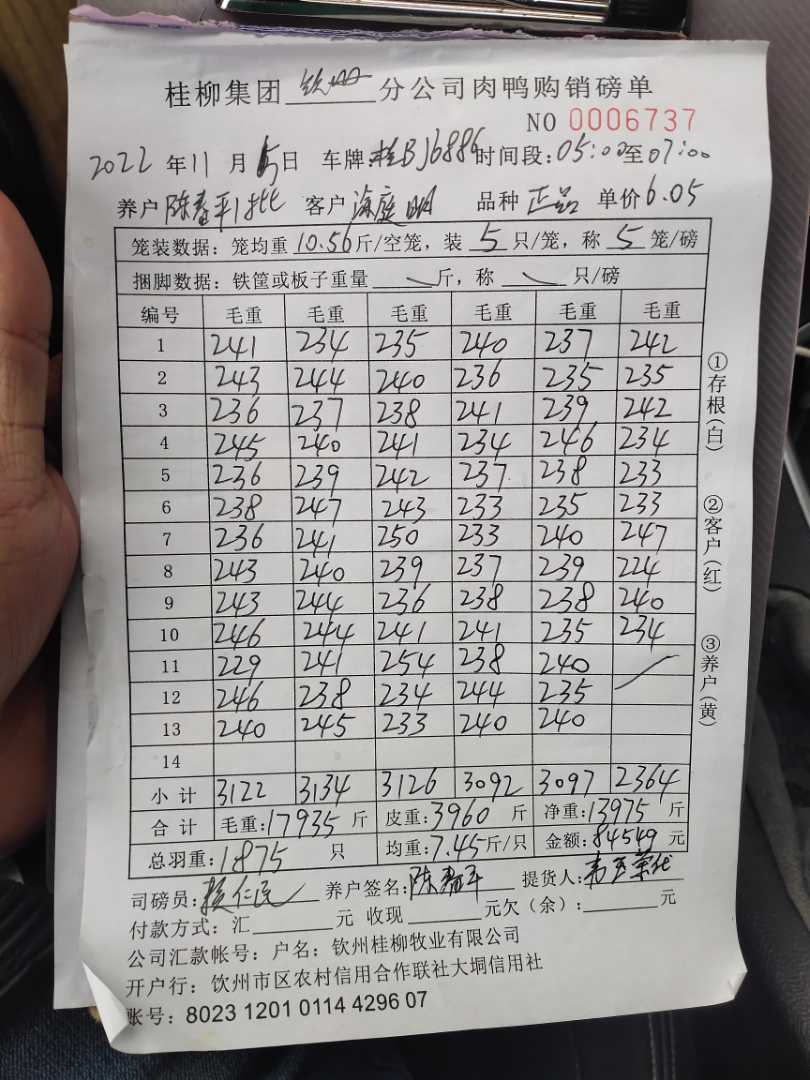 桂柳集团 钦州 分公司肉鸭购销磅单
NO 0006737
2022 年 11 月 5 日 车牌:桂BJ6886 时间段:05:00至07:00
养户 陈春平1批 客户 海庭明 品种 正品 单价 6.05
笼装数据：笼均重 10.56 斤/空笼，装 5 只/笼，称 5 笼/磅
捆脚数据：铁筐或板子重量 斤，称 只/磅
编号 毛重 毛重 毛重 毛重 毛重 毛重
1 241 234 235 240 237 242
2 243 244 240 236 235 235
3 236 237 238 241 239 242
4 245 240 241 234 246 234
5 236 239 242 237 238 233
6 238 247 243 233 235 233
7 236 241 250 233 240 247
8 243 240 239 237 239 224
9 243 244 236 238 238 240
10 246 244 241 241 235 234
11 229 241 254 238 240
12 246 238 234 244 235
13 240 245 233 240 240
14
小计 3122 3134 3126 3092 3097 2364
合计 毛重:17935 斤 皮重:3960 斤 净重:13975 斤
总羽重:1875 只 均重:7.45斤/只 金额:84549 元
司磅员: 养户签名:陈春平 提货人:
付款方式：汇 元 收现 元欠（余）: 元
公司汇款帐号：户名：钦州桂柳牧业有限公司
开户行：钦州市区农村信用合作联社大垌信用社
账号：8023 1201 0114 4296 07
①存根(白)
②客户(红)
③养户(黄)